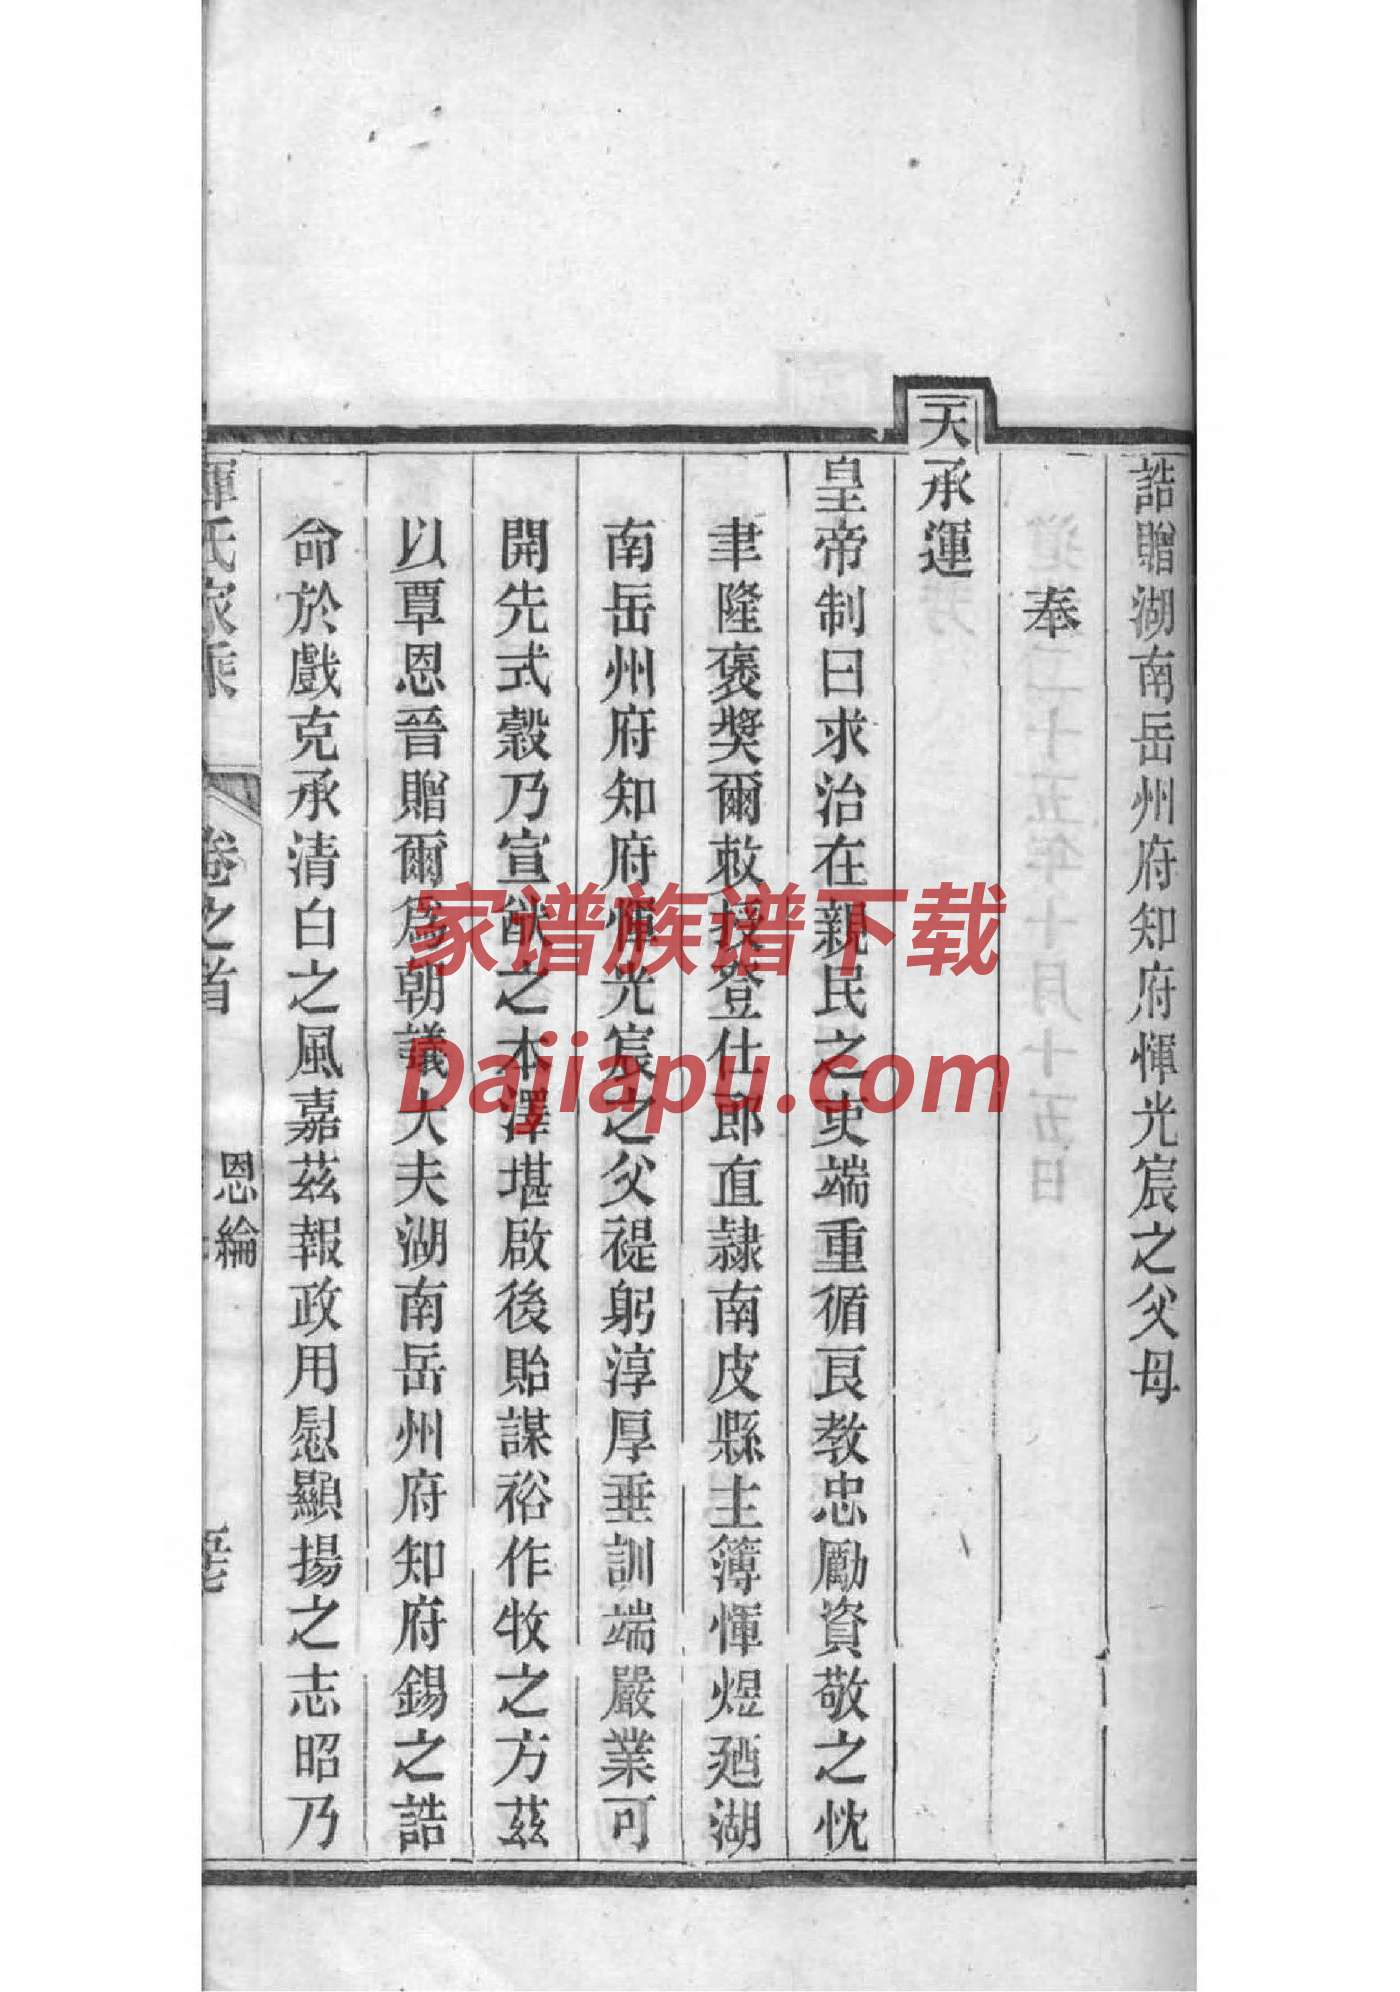 誥贈湖南岳州府知府惲光宸之父母
奉
天承運
皇帝制曰求治在親民之吏端重循良教忠勵資敬之忱
聿隆褒獎爾敕授登仕郎直隸南皮縣主簿惲煜廼湖
南岳州府知府惲光宸之父禔躬淳厚垂訓端嚴業可
開先式穀乃宣猷之本澤堪啟後貽謀裕作牧之方茲
以覃恩晉贈爾為朝議大夫湖南岳州府知府錫之誥
命於戲克承清白之風嘉茲報政用慰顯揚之志昭乃
惲氏家乘
卷之首
恩綸
家谱族谱下载
Dajiapu.com